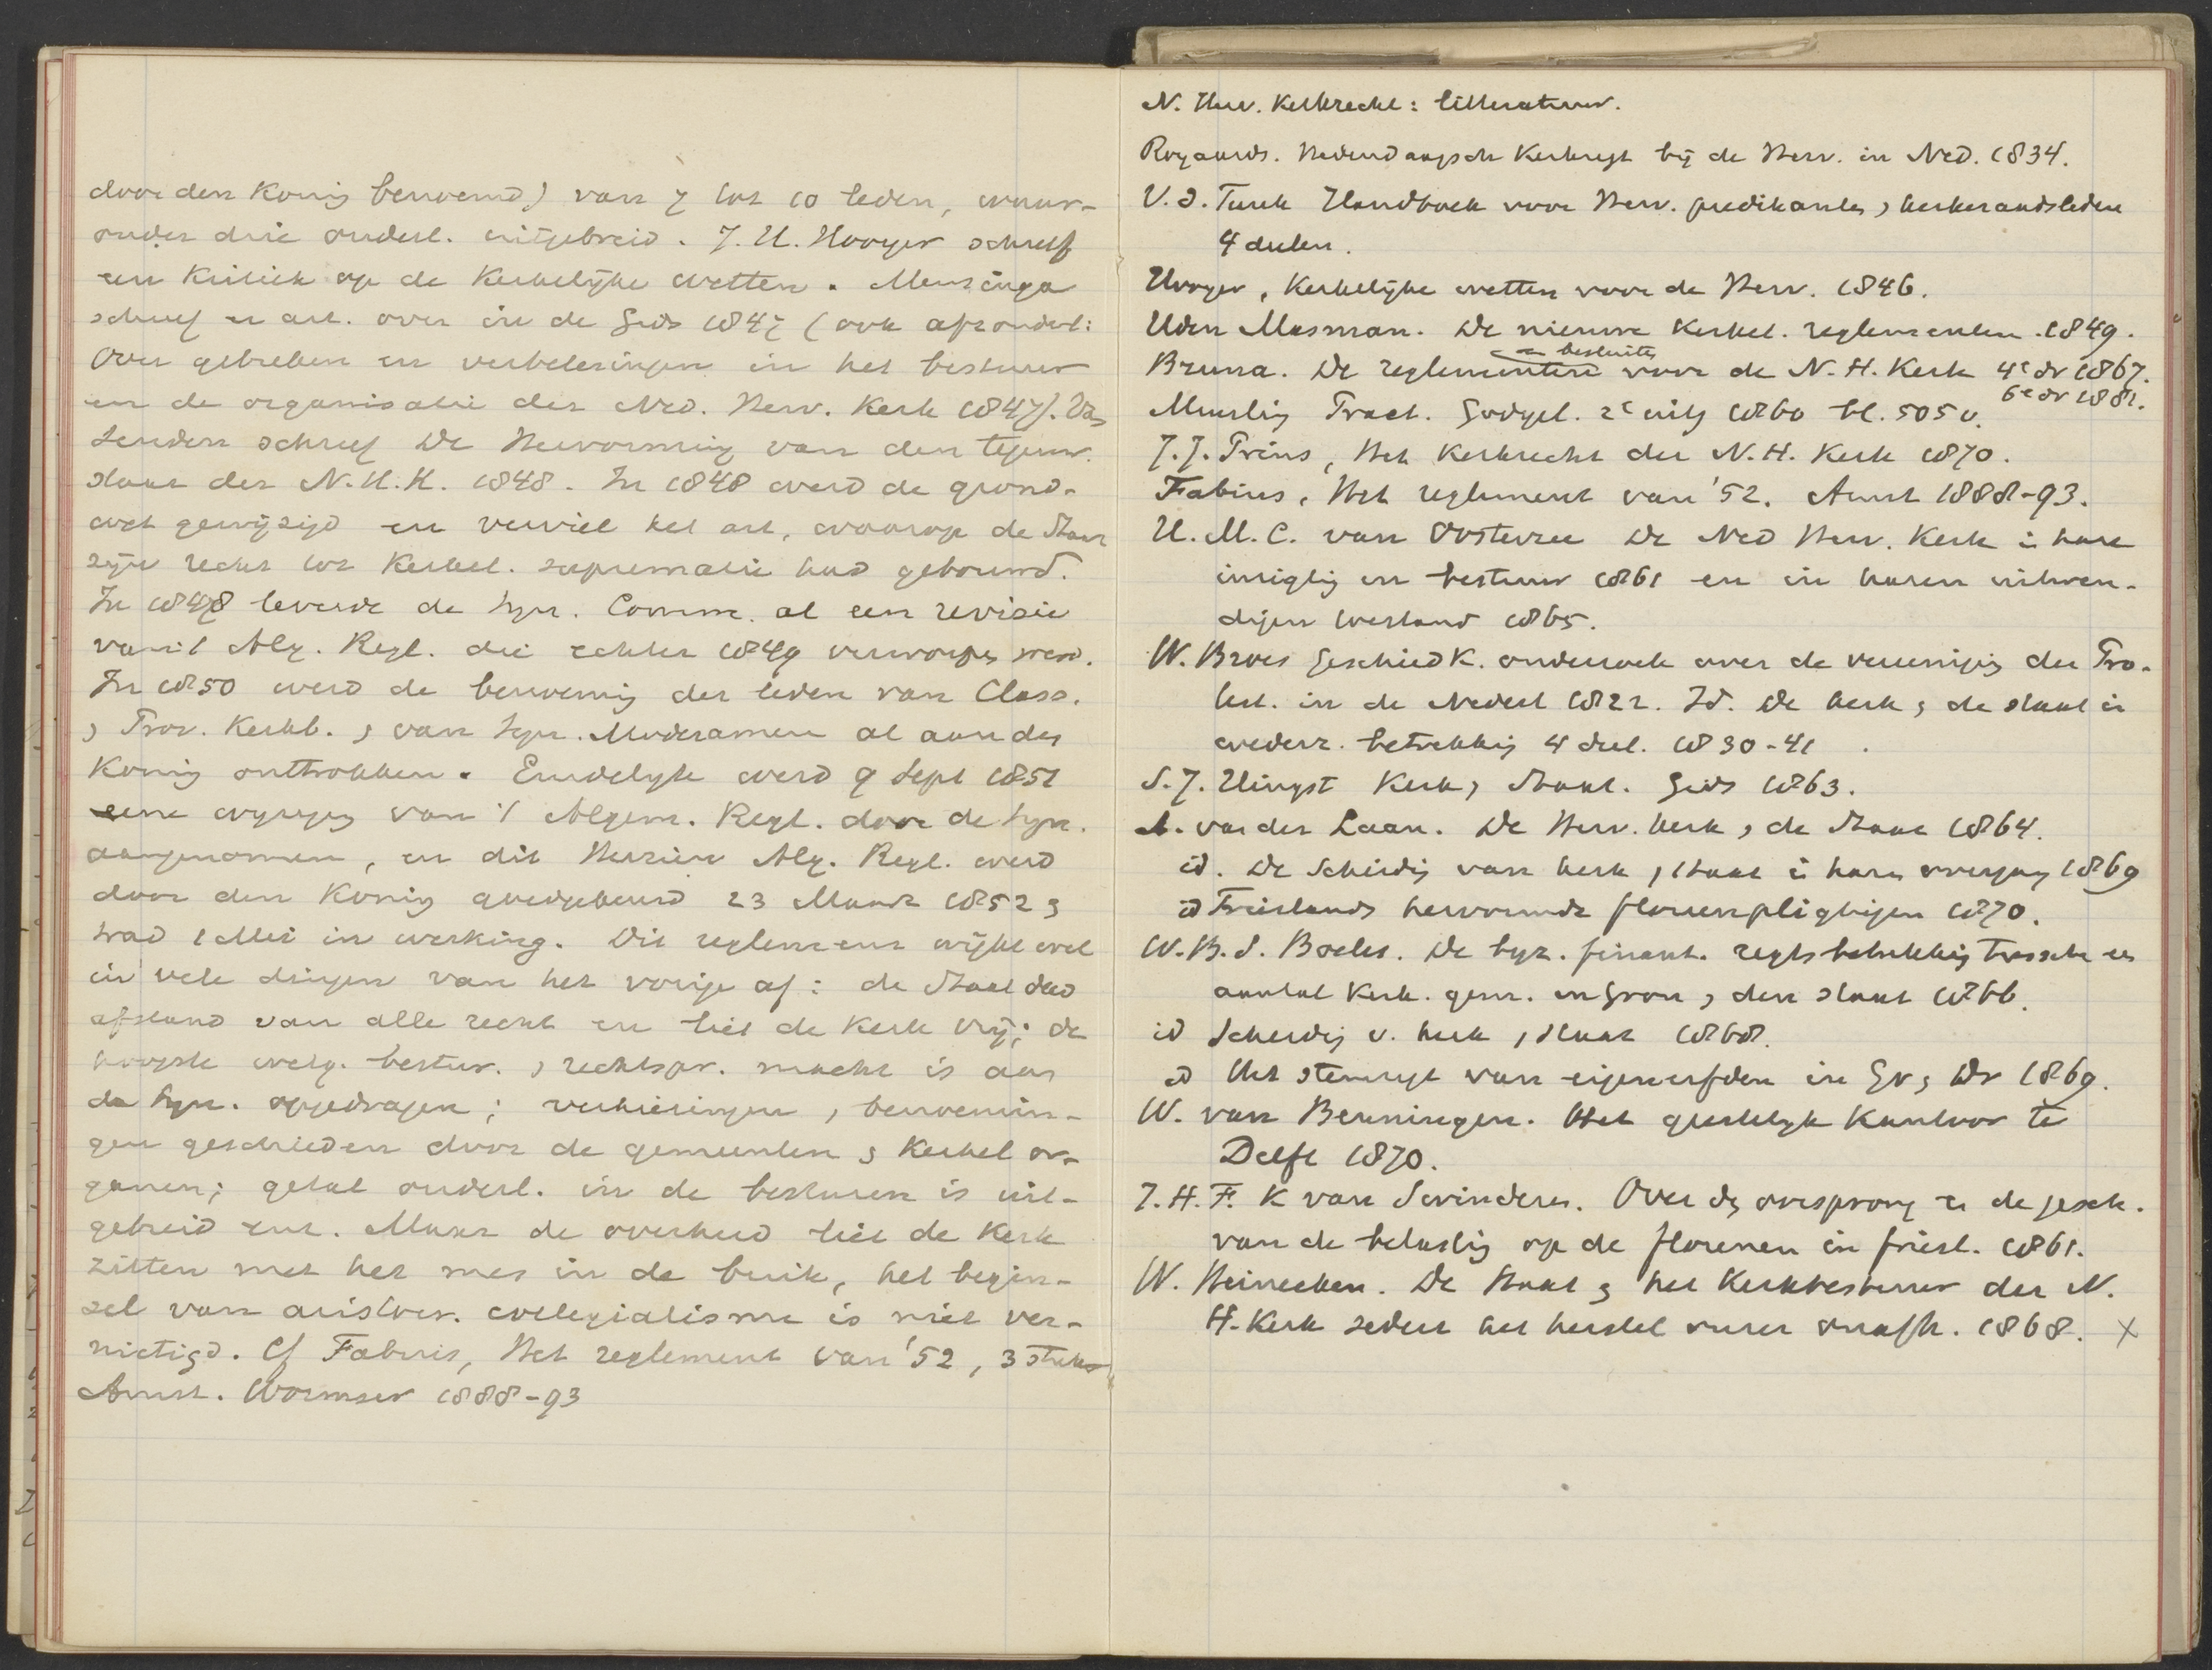 door den Koning benoemd) van 7 tot 10 leden, waar-
onder drie ouderl. uitgebreid. J. H. Hooyer schreef
een Kritiek op de Kerkelijke wetten. Mensinga
schreef er art. over in de Gids 1847 (ook afzonderl:
Over gebreken en verbeteringen in het bestuur
en de organisatie der Ned. Herv. Kerk 1847). Van
Senden schreef De Hervorming van den tegenw.
staat der N. H. K. 1848. In 1848 werd de grond-
wet gewijzigd en verviel het art, waarop de Staat
zijn recht tot Kerkel. suprematie had gebouwd.
In 1848 leverde de Syn. Comm. al een revisie
van 't Alg. Regl. die echter 1849 verworpen werd.
In 1850 werd de benoeming der leden van Class.
& Prov. Kerkb. & van Syn. Moderamen al aan den
Koning onttrokken. Eindelijk werd 9 Sept 1851
eene wijziging van 't Algem. Regl. door de Syn.
aangenomen, en dit Herziene Alg. Regl. werd
door den Koning goedgekeurd 23 Maart 1852 &
trad 1 Mei in werking. Dit reglement wijkt wel
in vele dingen van het vorige af: de Staat deed
afstand van alle recht en liet de Kerk vrij; de
hoogste wetg. bestur. & rechtspr. macht is aan
de Syn. opgedragen; verkiezingen & benoemin-
gen geschieden door de gemeenten & Kerkel or-
ganen; getal ouderl. in de besturen is uit-
gebreid enz. Maar de overheid liet de Kerk
zitten met het mes in de buik, het begin-
sel van aristocr. collegialisme is niet ver-
nietigd. Cf Fabius, Het reglement van '52, 3 stukken
Amst. Wormser 1888-93
N. Herv. Kerkrecht: litteratuur.
Royaards. Hedendaagsch Kerkregt bij de Herv. in Ned. 1834.
V. d. Tuuk Handboek voor Herv. predikanten & kerkeraadsleden
4 deelen.
Hooyer, Kerkelijke wetten voor de Herv. 1846.
Uden Masman. De nieuwe Kerkel. reglementen. 1849.
en besluiten
Bruna. De reglementen voor de N. H. Kerk 4e dr 1867.
6e dr 1881.
Meurling Pract. Godgel. 2e uitg 1860 bl. 505 v.
J. J. Prins, Het Kerkrecht der N. H. Kerk 1870.
Fabius, Het reglement van '52. Amst 1888-93.
H. M. C. van Oosterzee De Ned Herv. Kerk in hare
inrigtig en bestuur 1861 en in haren uitwen-
digen toestand 1865.
W. Broes Geschiedk. onderzoek over de vereeniging der Pro-
test. in de Nederl 1822. Id. De kerk & de staat in
wederz. betrekking 4 deel. 1830-41.
S. J. Hingst Kerk & Staat. Gids 1863.
A. van der Laan. De Herv. kerk & de Staat 1864.
id. De Scheiding van kerk & staat in haren overgang 1869
id Frieslands hervormde floreenpligtigen 1870.
W. B. S. Boeles. De byz. finant. regtsbetrekking tusschen een
aantal Kerk. gem. in Gron & den staat 1866.
id Scheiding v. kerk & staat 1868.
id Het stemregt van eigenerfden in Gr & Dr 1869.
W. van Beuningen. Het geestelijk Kantoor te
Delft 1870.
J. H. F. K van Swinderen. Over den oorsprong en de gesch.
van de belasting op de floreenen in Friesl. 1861.
W. Heineken. De Staat & het Kerkbestuur der N.
H. Kerk sedert het herstel onzer onafh. 1868. X